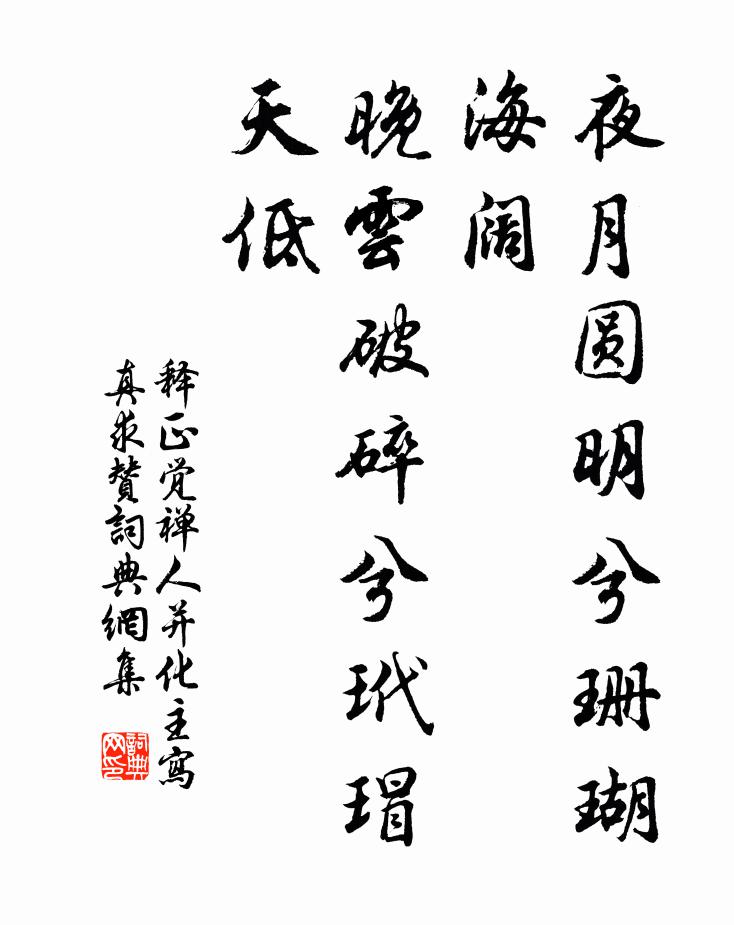 夜月圆明兮珊瑚
海阔
晚雲破碎兮玳瑁
天低
释正觉禅人并化主寫
真求赞詞典網集
詞典
网印